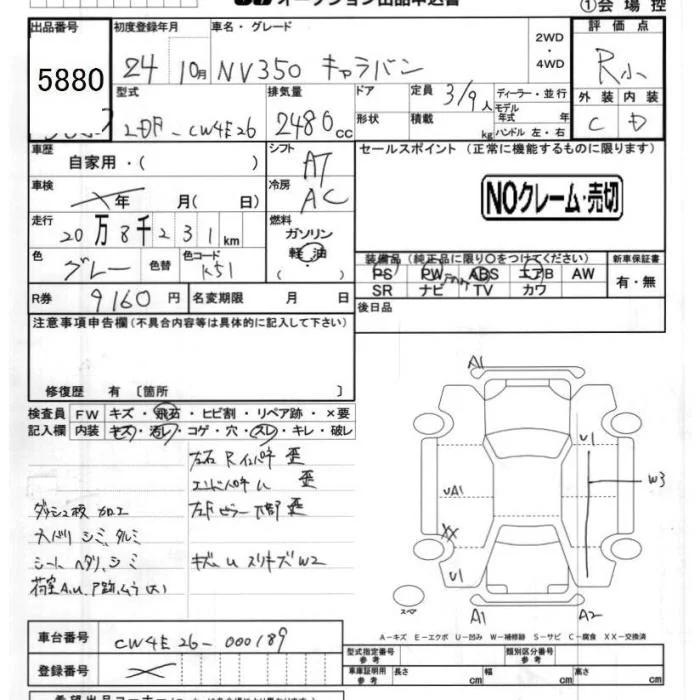 ①会場控
オークション出品申込書
出品番号 初度登録年月 車名・グレード 2WD・4WD 評価点
5880 24 10月 NV350 キャラバン R小
型式 排気量 ドア 定員 3/9人 ディーラー・並行 外装 内装
LDF-CW4E26 2480cc 形状 積載 kg モデル年式 年 ハンドル 左・右 C D
車歴 自家用・( ) シフト AT セールスポイント (正常に機能するものに限ります)
車検 年 月( 日) 冷房 AC NOクレーム・売切
走行 20万8千231km 燃料 ガソリン 軽油 ( ・ )
色 グレー 色替 色コード K51 装備品 (純正品に限り○をつけてください) 新車保証書
PS PW ABS エアB AW 有・無
SR ナビ TV カワ
R券 9160円 名変期限 月 日 後日品
注意事項申告欄(不具合内容等は具体的に記入して下さい)
修復歴 有 〔箇所 〕
検査員 FW キズ・飛石・ヒビ割・リペア跡・×要
記入欄 内装 キズ・汚レ・コゲ・穴・スレ・キレ・破レ
左右 Rインパネ 歪
エンドパネ 歪
ダッシュ板 加工 左F ピラー 下部 歪
天バリ シミ、タルミ
シート ヘタリ、シミ キズ・U スリキズ W2
荷室A.U.
A1
U1
W3
UA1
XX
U1
スペア
A1 A2
A-キズ E-エクボ U-凹み W-補修跡 S-サビ C-腐食 XX-交換済
車台番号 CW4E26-000189
登録番号
型式指定番号 参考 類別区分番号 参考
車庫証明用 参考 長さ cm 幅 cm 高さ cm